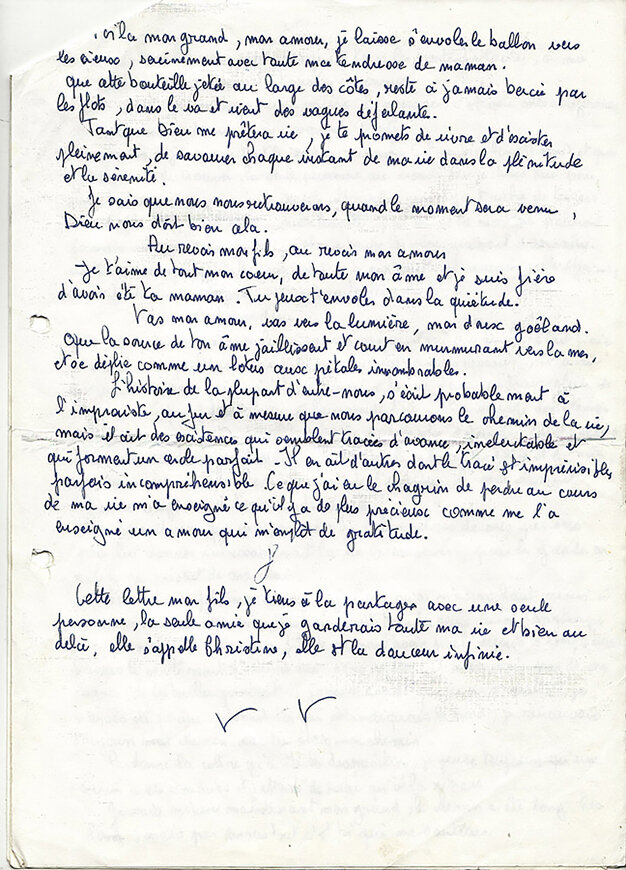 Voilà mon grand, mon amour, je laisse s'envoler le ballon vers
les cieux, sereinement avec toute ma tendresse de maman.
Que cette bouteille jetée au large des côtes, reste à jamais bercée par
les flots, dans le va et vient des vagues déferlantes.
Tant que Dieu me prêtera vie, je te promets de vivre et d'exister
pleinement, de savourer chaque instant de ma vie dans la plénitude
et la sérénité.
Je sais que nous nous retrouverons, quand le moment sera venu,
Dieu nous doit bien cela.
Au revoir mon fils, au revoir mon amour
Je t'aime de tout mon cœur, de toute mon âme et je suis fière
d'avoir été ta maman. Tu peux t'envoler dans la quiétude.
Vas mon amour, vas vers la lumière, mon doux goéland.
Que la source de ton âme jaillissent et court en murmurant vers la mer,
et se déplie comme un lotus aux pétales innombrables.
L'histoire de la plupart d'entre-nous, s'écrit probablement à
l'improviste, au fur et à mesure que nous parcourons le chemin de la vie,
mais il ait des existences qui semblent tracées d'avance, inéluctable et
qui forment un cercle parfait - Il en ait d'autres dont le tracé est imprévisible,
parfois incompréhensible. Ce que j'ai eu le chagrin de perdre au cours
de ma vie m'a enseigné ce qu'il y a de plus précieux comme me l'a
enseigné un amour qui m'emplit de gratitude.
Cette lettre mon fils, je tiens à la partager avec une seule
personne, la seule amie que je garderais toute ma vie et bien au
delà, elle s'appelle Christine, elle est la douceur infinie.